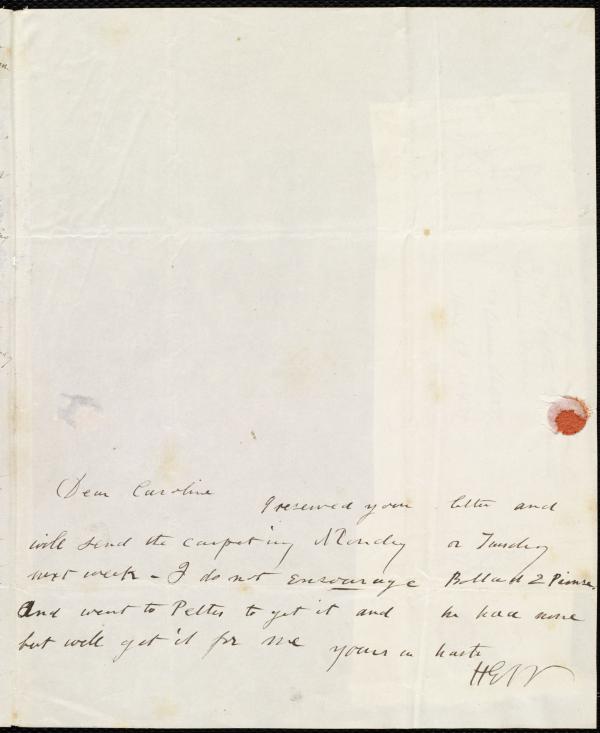 Dear Caroline I reseived your letter and
will send the carpeting Monday or Tuesday
next week - I do not ensourage
and went to Peltes to get it and he had none
but will get it for me yours in haste